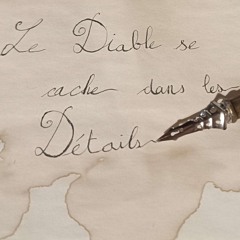 Le Diable se
cache dans les
Détails